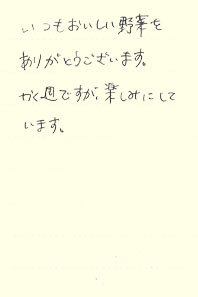 いつもおいしい野菜を
ありがとうございます。
かく週ですが、楽しみにして
います。